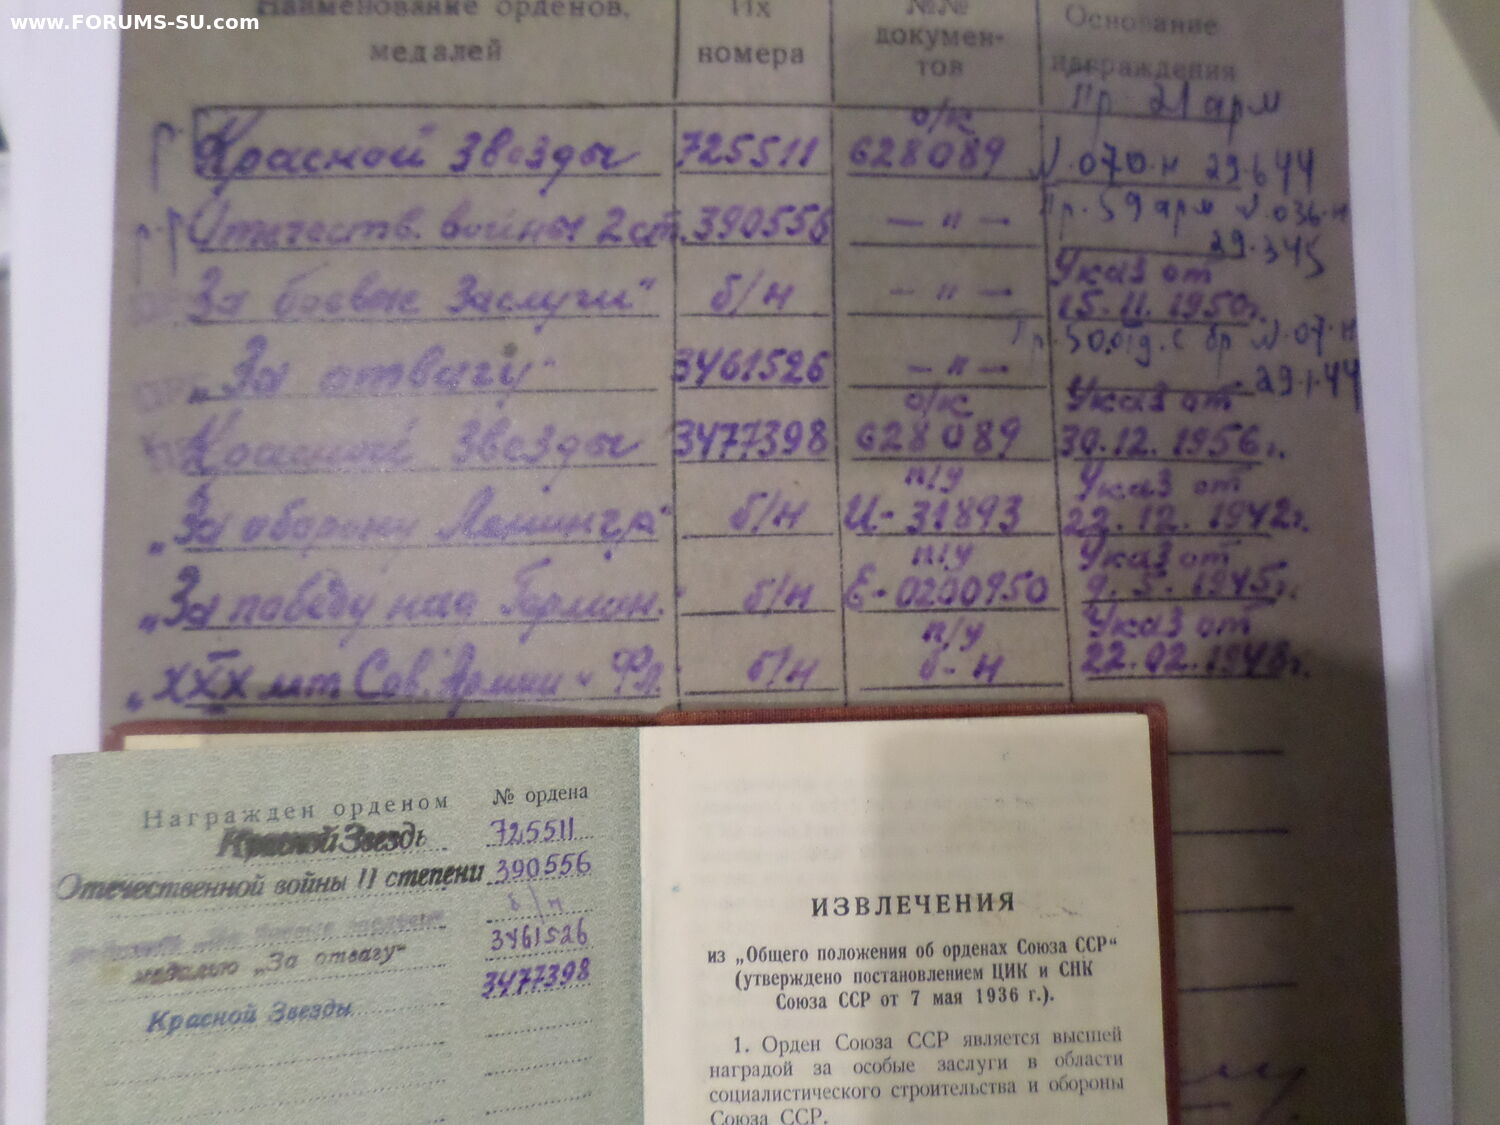 www.FORUMS-SU.com
Наименование орденов, медалей
Их номера
№№ докумен-тов
Основание награждения
Пр. 21 арм
Красной Звезды 725511 о/к 628089 N. 070.н 29.6 44
Отечеств. войны 2 ст. 390556 — " — Пр. 59 арм N. 036.н
29.3 45
За боевые заслуги" б/н — " — Указ от 15.11.1950г.
„За отвагу" 3461526 — " — N. 07.н
29.1.44
Красной Звезды 3477398 о/к 628089 Указ от 30.12.1956г.
„За оборону Ленингр" б/н п/у И-31893 Указ от 22.12.1942г.
„За победу над Герман." б/н п/у Е-0200950 Указ от 9.5.1945г.
„XXX лет Сов. Армии и Фл. б/н п/у б-н Указ от 22.02.1948г.
Награжден орденом № ордена
Красной Звезды 725511
Отечественной войны II степени 390556
б/н
медалью „За отвагу" 3461526
Красной Звезды 3477398
ИЗВЛЕЧЕНИЯ
из „Общего положения об орденах Союза ССР"
(утверждено постановлением ЦИК и СНК
Союза ССР от 7 мая 1936 г.).
1. Орден Союза ССР является высшей
наградой за особые заслуги в области
социалистического строительства и обороны
Союза ССР.